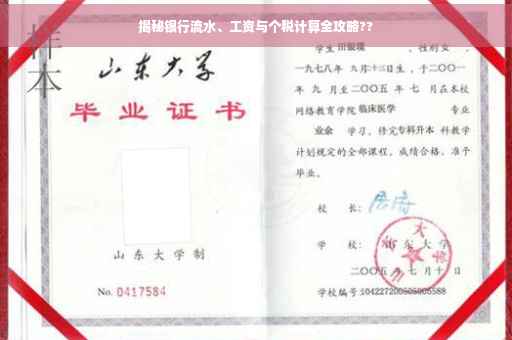 揭秘银行流水、工资与个税计算全攻略??
样本
山东大学
毕业证书
山东大学制
No. 0417584
学生 田银瑞 ，性别女，
一九七八年 九月十三日生，于二〇〇一
年 九 月至二〇〇五 年 七 月在本校
网络教育学院 临床医学 专业
业余 学习，修完专科升本 科教学
计划规定的全部课程，成绩合格，准予
毕业。
校 长：
学 校：山东大学
二〇〇五 年 七 月 十 日
学校编号：